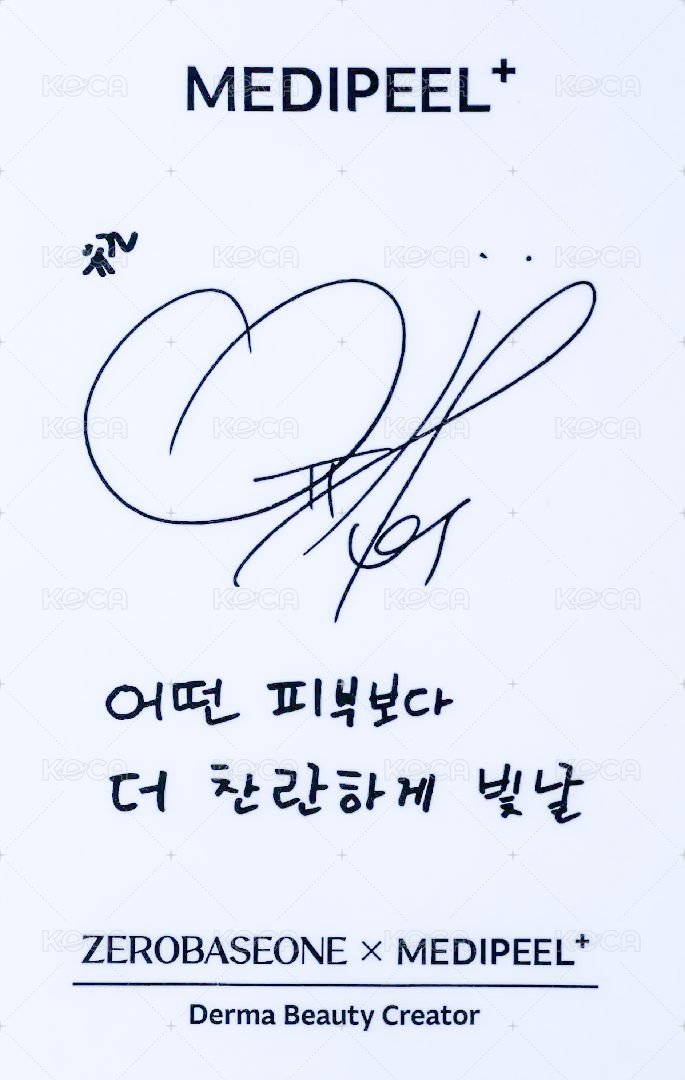 MEDIPEEL+
어떤 피부보다
더 찬란하게 빛날
ZEROBASEONE × MEDIPEEL+
Derma Beauty Creator